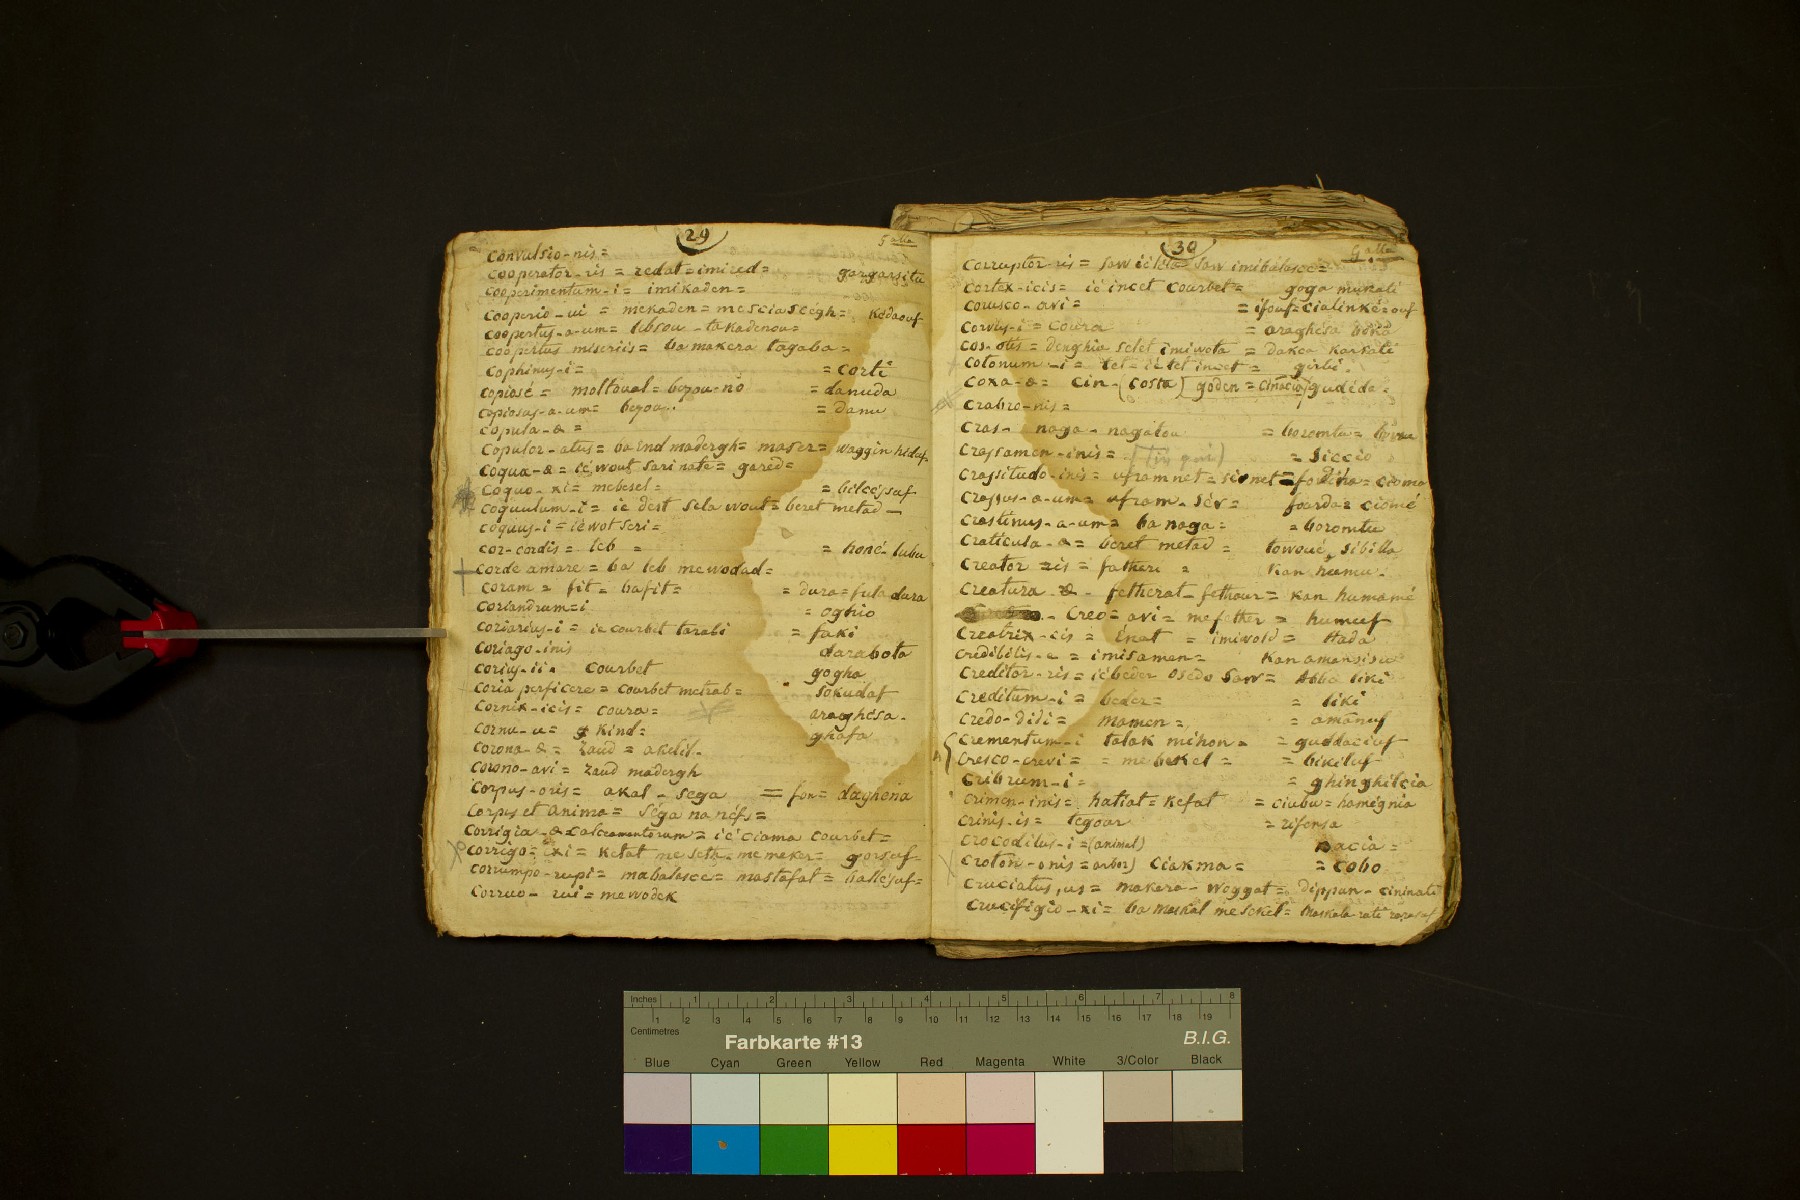 29
Galla
Convulsio-nis=
Cooperator-ris = redat=imired= gargarsitu
Cooperimentum-i= imikaden=
Cooperio-ui = mekaden= mesciascégh= Kédaouf
Coopertus-a-um= libsou-takadenou=
Coopertus miseriis= ba makera tagaba=
Cophinus-i= = corti
Copiosé= moltoual= bezou-no = danuda
Copiosus-a-um= bezou.. = danu
Copula-æ=
Copulor-atus= ba End madergh= maser= waggin hidaf
Coqua-æ= ie wout sari nate= gared=
Coquo-xi= mebesel= = bilcéssuf
Coquulum-i= ie dest sela wout= beret metad-
Coquus-i=iéwot seri=
Cor-cordis= leb = = honé-lubu
Corde amare= ba leb mewodad=
Coram= fit= bafit= = dura=fula dura
Coriandrum=i = oghio
Coriarius-i= ie courbet tarabi = faki
Coriago-inis darabota
Corius-ii. courbet gogha
Coria perficere= courbet metrab= sokudaf
Cornix-icis= coura= araghesa-
Cornu-u= kind= ghafa
Corona-æ= zaud= aklil-
Corono-avi= zaud madergh
Corpus-oris= akal-sega = fon= daghena
Corpus et anima= séga na néfs=
Corrigia-æ calceamentorum= ié ciama courbet=
Corrigo=exi= ketat me seth=memeker= gorsuf-
Corrumpo-rupi= mabalasce= mastafat= ballésuf=
Corruo-rui= mewodek
30
Galla
Corruptor-ris= saw iéléta saw imibalasce=
Cortex-icis= ié incet courbet= goga mukati
Corusco-avi= = ifouf=cialinké=ouf
Corvus-i= coura = araghesa boka
Cos-otis= denghia selet imiwota = dakca karkati
Cotonum-i= tet=ié tet incet= girbi.
Coxa-æ= cin-(costa) goden= cinacia gudéda-
Crabro-nis=
Cras- naga-nagatou = boromtu= borou
Crassamen-inis= = siccio
Crassitudo-inis= uframnet= sirnet= fordina= cioma
Crassus-a-um= ufram-sér= foarda= ciomé
Crastinus-a-um= ba naga= =boromtu
Craticula-æ= beret metad = towoué, sibilla
Creator-ris= fatheri = kan humu-
Creatura-æ- fetherat-fethour= kan humamé
Creo=avi= mefather= humuf
Creatrix-cis= Enat= imiwold= Hada
Credibilis-e= imisamen= kan amansisu
Creditor-ris= iébeder osedo saw= Abba liki
Creditum-i= beder= = liki
Credo-didi= mamen= = amanuf
Crementum-i talak mihon= = guddaciuf
Cresco-crevi= = mebekel= = bikiluf
Cribrum-i= = ghinghilcia
Crimen-inis= hatiat=kefat = ciubu=hamégnia
Crinis-is= tegour = rifensa
Crocodilus-i=(animal) nacia=
Croton-onis=arbor) Ciakma= = Cobo
Cruciatus, us= makera-woggat= dippun-cininati
Crucifigio-xi= ba maskal mesekel= maskala rati
Inches 1 2 3 4 5 6 7 8
1 2 3 4 5 6 7 8 9 10 11 12 13 14 15 16 17 18 19
Centimetres
Farbkarte #13 B.I.G.
Blue Cyan Green Yellow Red Magenta White 3/Color Black